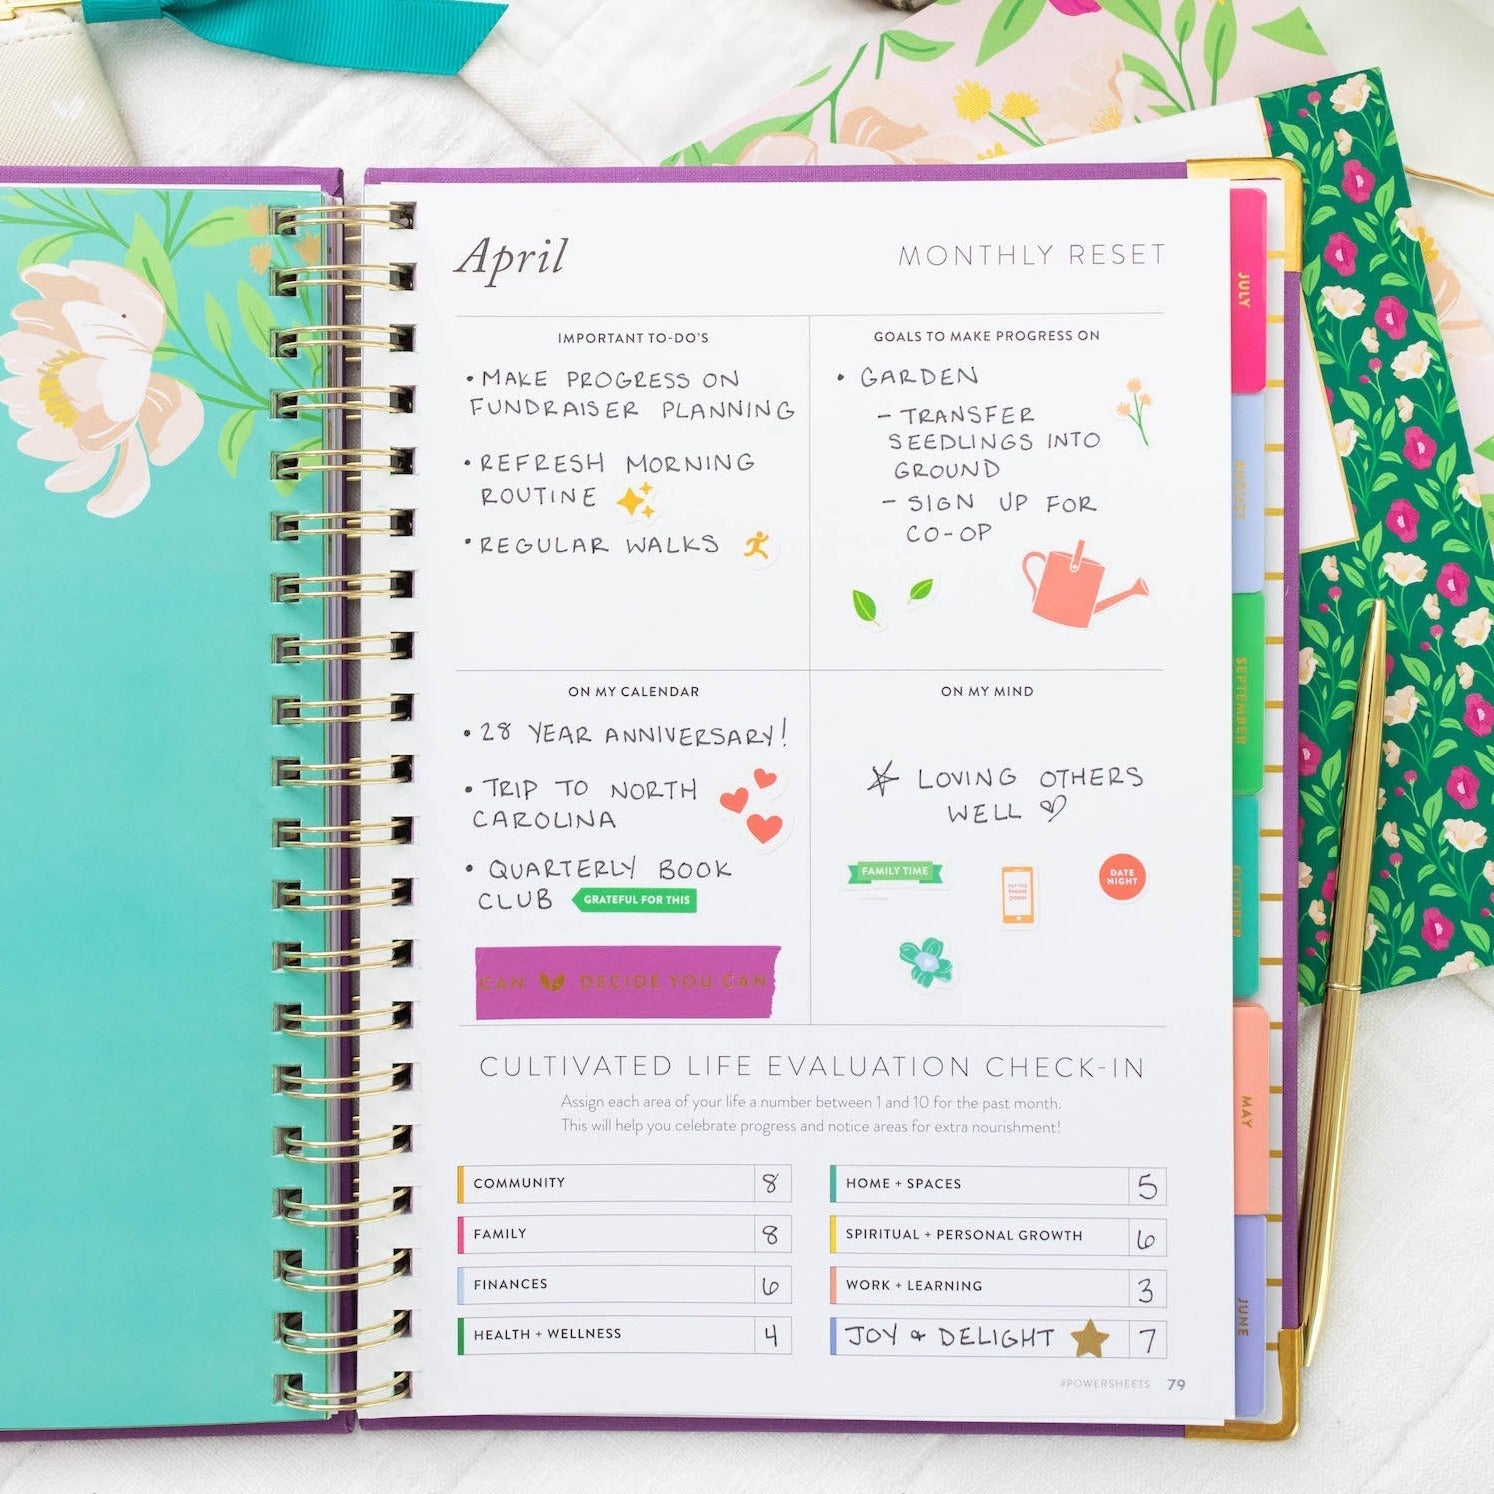 April
MONTHLY RESET
IMPORTANT TO-DO'S
• MAKE PROGRESS ON
FUNDRAISER PLANNING
• REFRESH MORNING
ROUTINE
• REGULAR WALKS
GOALS TO MAKE PROGRESS ON
• GARDEN
- TRANSFER
SEEDLINGS INTO
GROUND
- SIGN UP FOR
CO-OP
ON MY CALENDAR
• 28 YEAR ANNIVERSARY!
• TRIP TO NORTH
CAROLINA
• QUARTERLY BOOK
CLUB
GRATEFUL FOR THIS
CAN DECIDE YOU CAN
ON MY MIND
LOVING OTHERS
WELL
FAMILY TIME
PUT THE
PHONE
DOWN
DATE
NIGHT
CULTIVATED LIFE EVALUATION CHECK-IN
Assign each area of your life a number between 1 and 10 for the past month.
This will help you celebrate progress and notice areas for extra nourishment!
COMMUNITY 8
FAMILY 8
FINANCES 6
HEALTH + WELLNESS 4
HOME + SPACES 5
SPIRITUAL + PERSONAL GROWTH 6
WORK + LEARNING 3
JOY & DELIGHT 7
#POWERSHEETS 79
JULY
AUGUST
SEPTEMBER
OCTOBER
MAY
JUNE